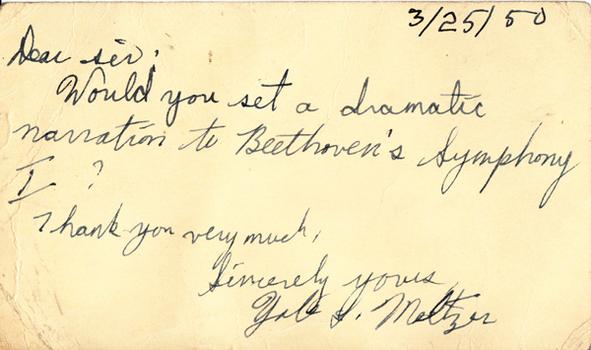 3/25/50
Dear sir:
Would you set a dramatic
narration to Beethoven's Symphony
I ?
Thank you very much,
Sincerely yours,
Yale L. Meltzer